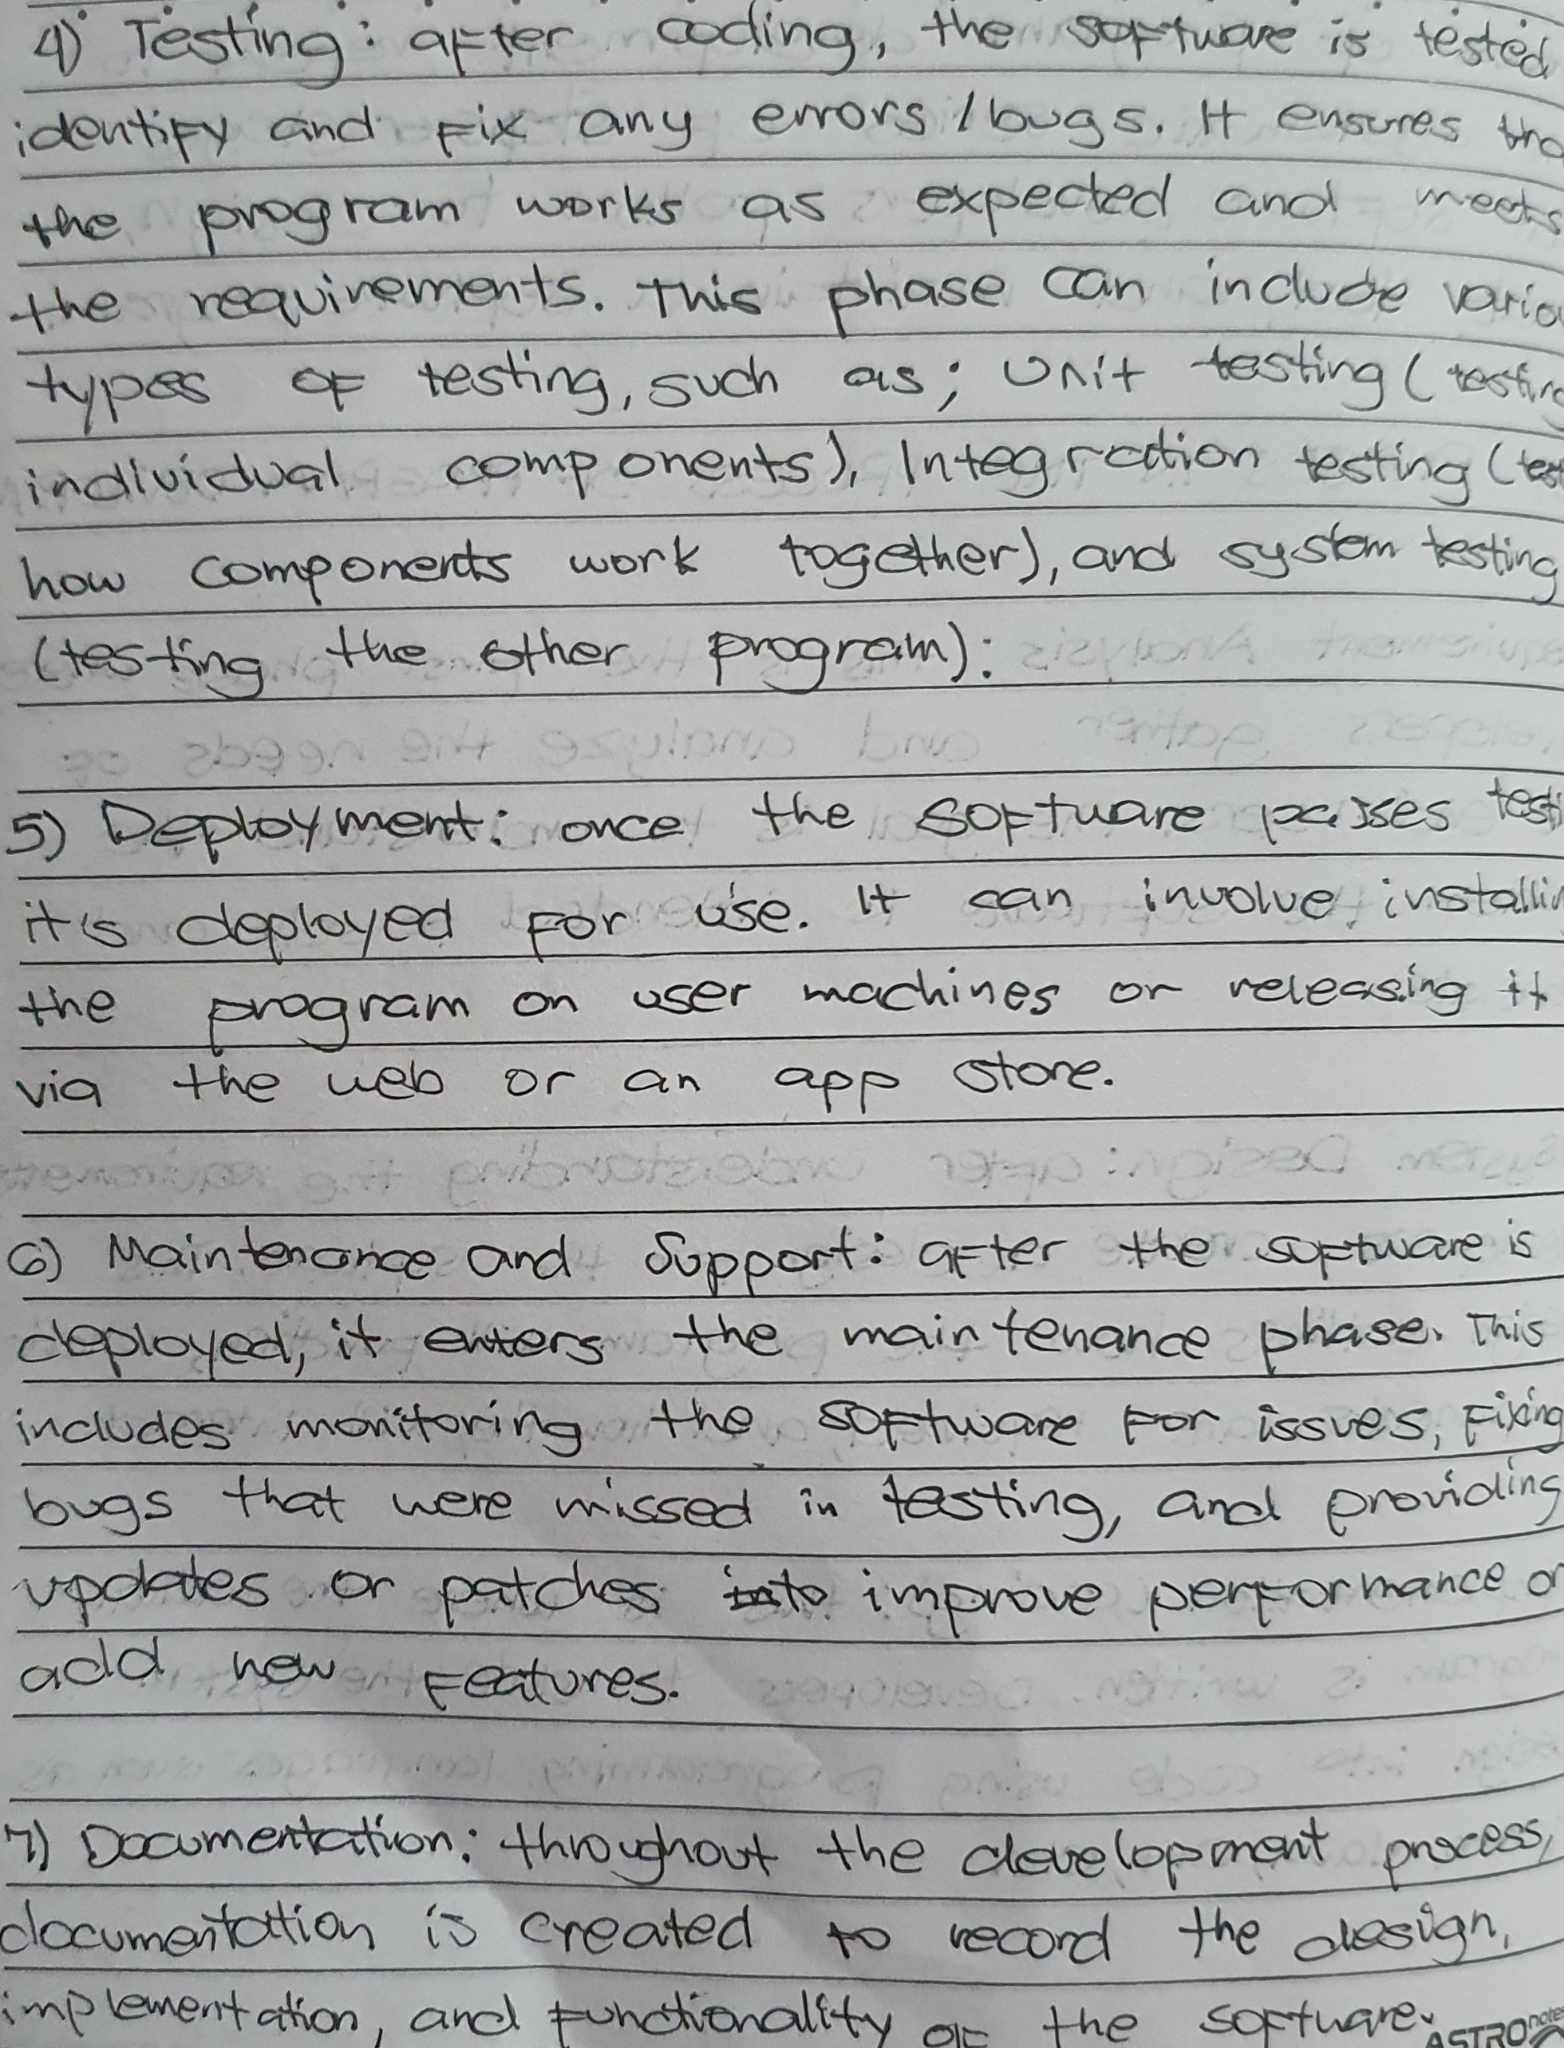 4) Testing: after coding, the software is tested
identify and fix any errors/bugs. It ensures tha
the program works as expected and meets
the requirements. This phase can include vario
types of testing, such as; Unit testing (testing
individual components), Integration testing (test
how components work together), and system testing
(testing the other program):
5) Deployment: once the software passes testi
it's deployed for use. It can involve installin
the program on user machines or releasing it
via the web or an app store.
6) Maintenance and Support: after the software is
deployed, it enters the maintenance phase. This
includes monitoring the software for issues, fixing
bugs that were missed in testing, and providing
updates or patches into improve performance or
add new features.
7) Documentation: throughout the development process,
documentation is created to record the design,
implementation, and functionality of the software.
ASTRO notes